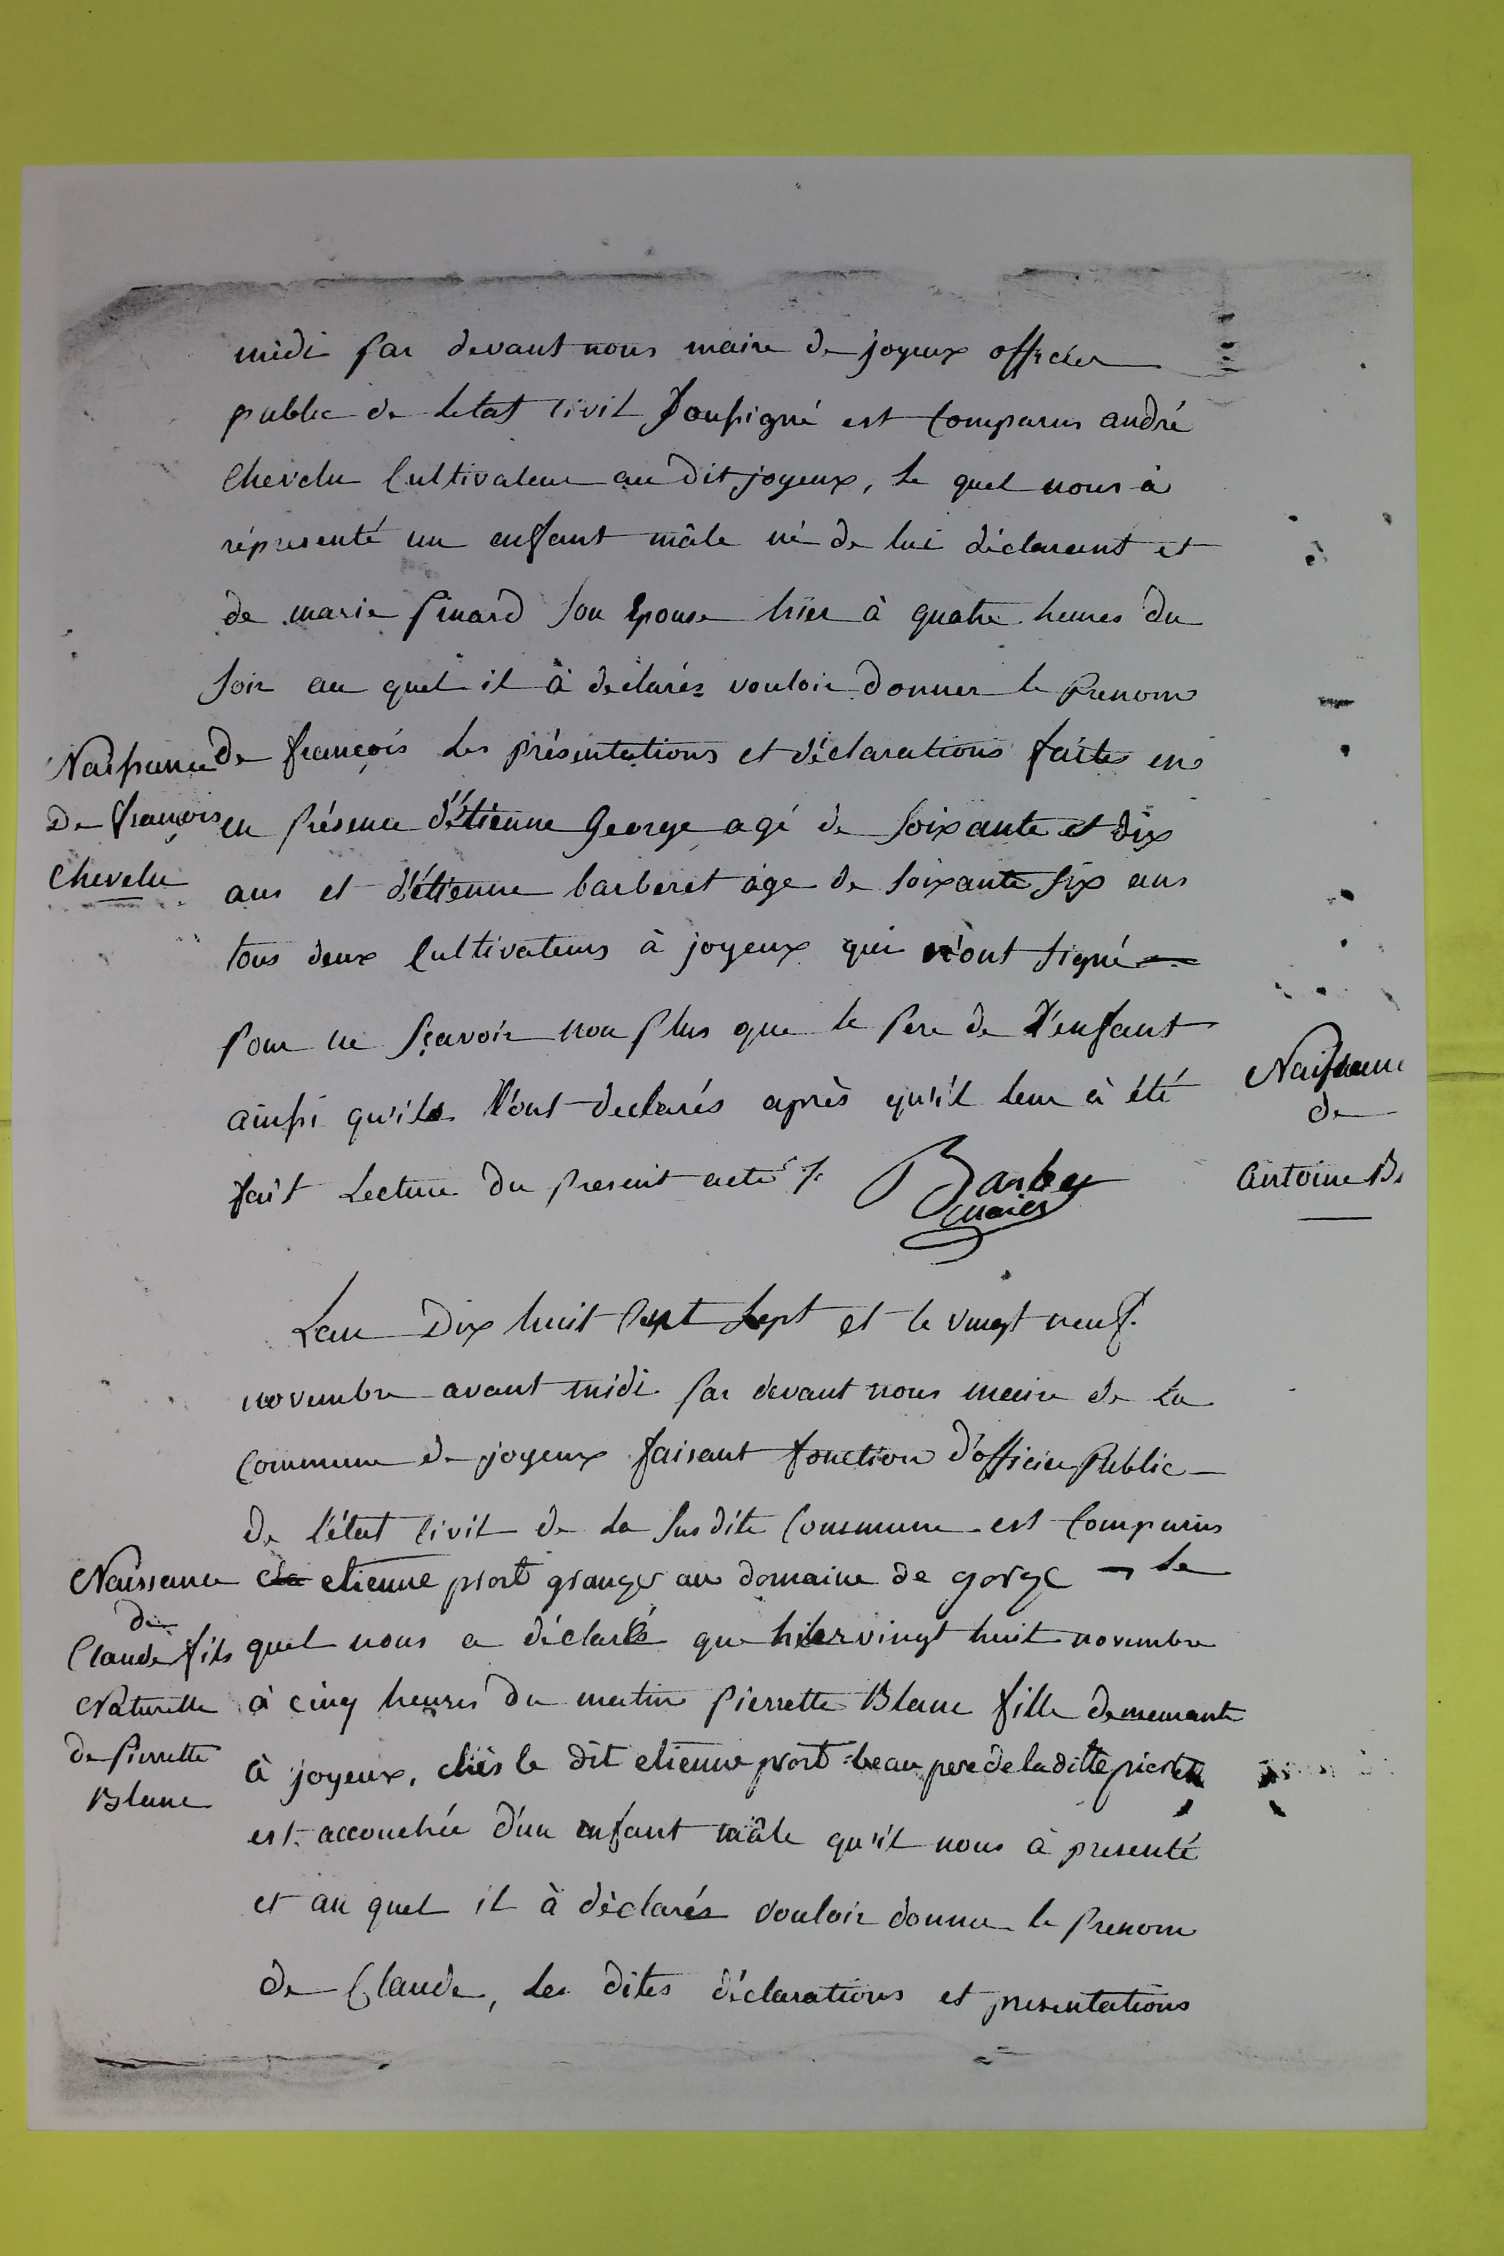 midi par devant nous maire de joyeux officier
public de letat civil Soussigné est Comparus andré
Chevelu Cultivateur au dit joyeux, le quel nous à
répresenté un enfant mâle né de lui déclarant et
de marie pinard son Epouse hier à quatre heures du
soir au quel il à declarés vouloir donner le prenom
de françois les présentations et déclarations faites en
en présence d'étienne George agé de soixante et dix
ans et d'étienne barberet age de soixante six ans
tous deux Cultivateurs à joyeux qui n'ont signé
pour ne sçavoir non plus que le pere de l'enfant
ainsi qu'ils l'ont declarés après qu'il leur à été
fait Lecture du present acte
Barbey
maire
Naissance
De françois
Chevelu
Naissance
de
antoine B
Lan Dix huit Cent Sept et le vingt neuf
novembre avant midi par devant nous maire de La
Commune de joyeux faisant fonction d'officier Public
de l'état Civil de La Susdite Commune est Comparus
etienne prost granger au domaine de gorge le
quel nous a déclaré que hier vingt huit novembre
à cinq heures du matin pierrette Blanc fille demeurante
à joyeux, chès le dit etienne prost beau pere de la ditte
est accouchée d'un enfant mâle qu'il nous à presenté
et au quel il à dèclarés vouloir donner le prenom
de Claude, Les dites déclarations et presentations
Naissance
de
Claude fils
Naturelle
de Pierrette
Blanc